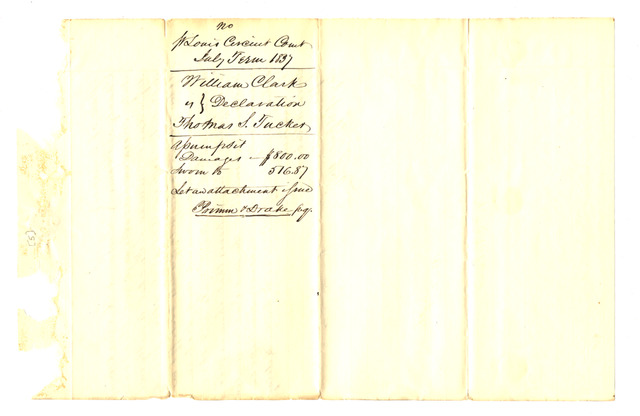 no
St Louis Circuit Court
July Term 1837
William Clark
vs } Declaration
Thomas S. Tucker
Assumpsit
Damages — $800.00
Sworn to 516.87
Let an attachment issue
& Drake p.q.
(5)